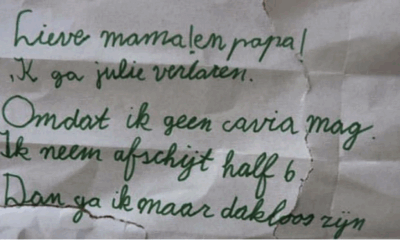 Lieve mama!en papa!
Ik ga julie verlaren.
Omdat ik geen cavia mag.
Ik neem afschijt half 6
Dan ga ik maar dakloos zijn